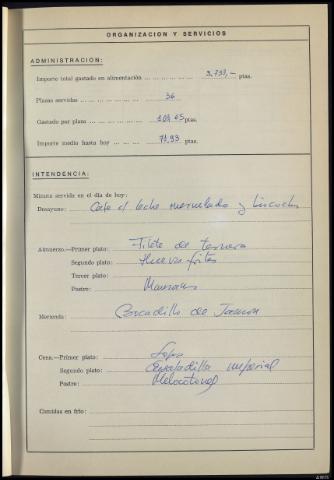 ORGANIZACION Y SERVICIOS
ADMINISTRACION:
Importe total gastado en alimentación ... 3.733,— ptas.
Plazas servidas ... 36
Gastado por plaza ... ptas.
Importe medio hasta hoy ... 71,93 ptas.
INTENDENCIA:
Minuta servida en el día de hoy:
Desayuno: Cafe leche mermelada y
Almuerzo.—Primer plato: Filete de ternera
Segundo plato: Huevos fritos
Tercer plato:
Postre: Manzanas
Merienda: Bocadillo de Jamon
Cena.—Primer plato: Sopa
Segundo plato: Ensaladilla imperial
Postre: Melocotones
Comidas en frío: